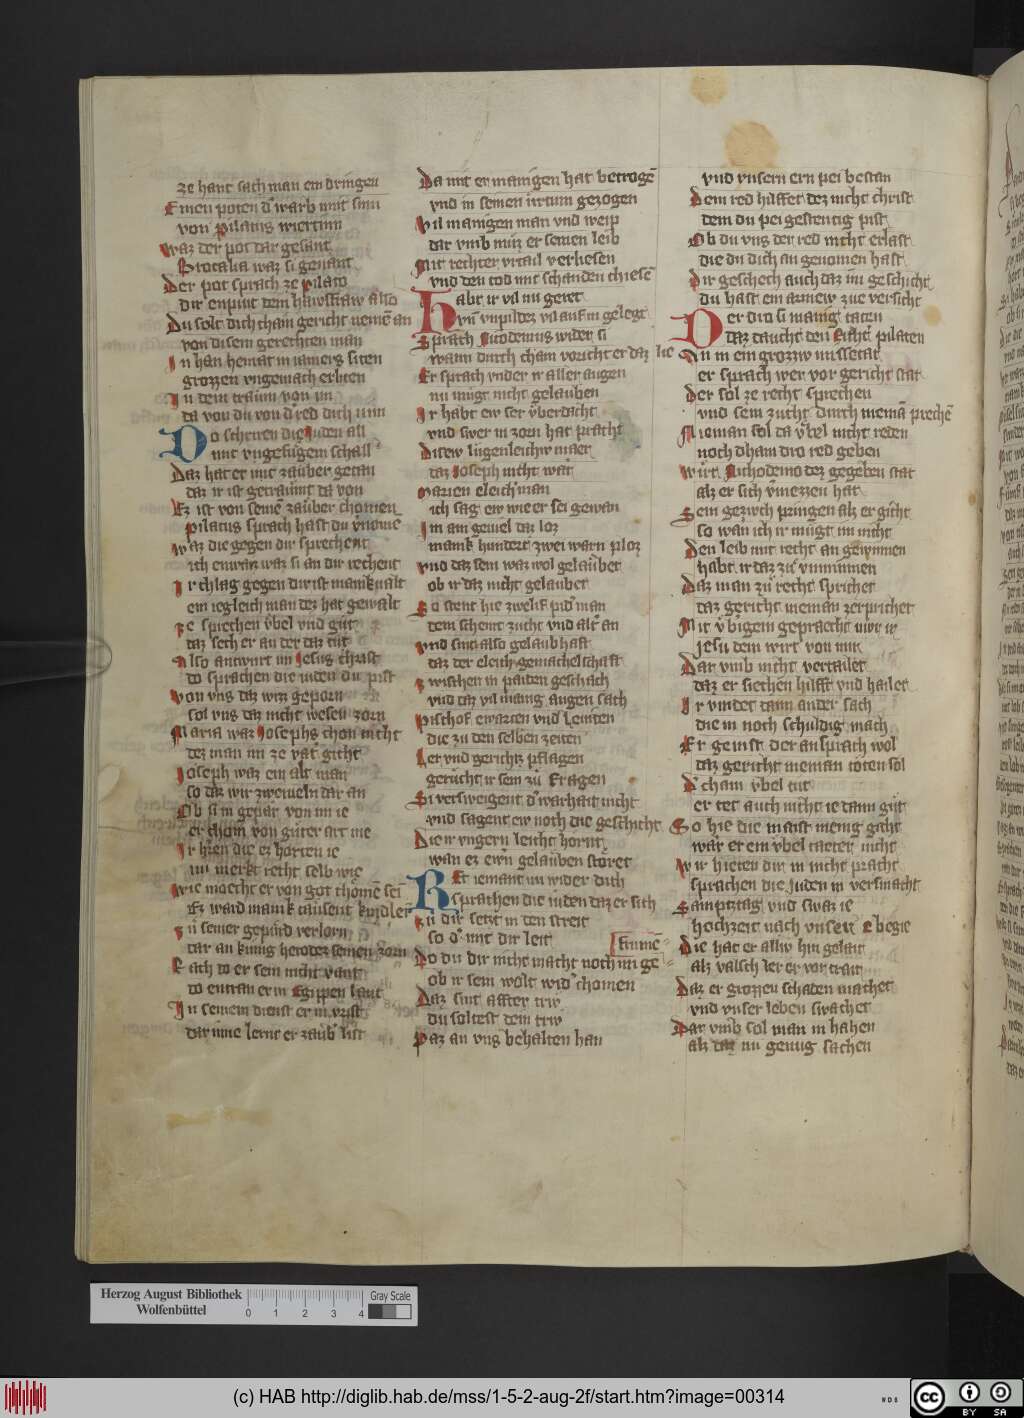 ze hant sach man ein dringen
Einen poten d' warb mit sinn
von Pilatus wiertinn
waz der pot dar gesant
Procalia waz si genant
Der pot sprach ze pilato
dir enpiut dem hawsfraw also
Du solt dich cham gericht nemē an
von disem gerechten man
in han heinat in iamers siten
grozzen vngemach erliten
In dem traum von im
da von du von d' red dich nim
Do schrien die Juden all
mit vngefugem schall
Daz hat er mit zauber getan
daz ir ist getraumt da von
Ez ist von seinē zauber chomen
pilatus sprach hast du v'nomē
waz die gegen dir sprechent
ich enwaz waz si an dir rechent
Ir chlag gegen dir ist manikualt
ein iegleich man dez hat gewalt
ze sprechen v̈bel vnd gut
daz sech er an der daz tut
Also antwurt im Jesus christ
do sprachen die iuden du pist
von vns daz wizz geporn
sol vns daz nicht wesen zorn
Maria waz Josephs chon nicht
dez man im ze vat' gicht
Joseph waz ein alt man
so daz wir zweiueln dar an
Ob si in gepar von im ie
er chom von guter art nie
Ir hrren die ez horten ie
nu merkt recht selb wie
wie moecht er von got chomē sei
Ez ward manik tausent kindlei
zu seiner gepurd verlorn
dar an kunig herodez seinen zorn
Rach do er sein nicht vant
do entran er in Egippen lant
In seinem dienst er in vrist
dar inne lernt er zaub' list
Da mit er manigen hat betrogē
vnd in seinen irtum gezogen
vil manigen man vnd weip
dar vmb muz er seinen leib
Mit rechter vrtail verliesen
vnd den tod mit schanden chiesē
Habt ir vil nu geret
vn̄ vnpildez vil auf in gelegt
Sprach Nicodemus wider si
wann durch cham voricht er daz lie
Er sprach vnder ir aller augen
nu mugt nicht gelauben
Ir habt ew ser v̈berdacht
vnd swer in zorn hat pracht
Ditew lugenleichw maer
daz Joseph nicht war
Marien eleich man
ich sag ew wie er sei gewan
Im am gewel daz loz
manik hundert zwei warn ploz
vnd daz sein waz wol gelaubet
ob ir daz nicht gelaubet
So stent hie zwelif pid'man
dem scheint zucht vnd alt' an
vnd sint also gelaubhaft
daz der eleich gemachelschaft
zwischen in paiden geschach
vnd daz vil manig augen sach
Pischof ewarten vnd Leuiten
die zu den selben zeiten
Ler vnd gerichtz pflagen
gerucht ir sein zu fragen
Si versweigent d' warhait nicht
vnd sagent ew noch die geschicht
Die ir vngern leicht hornt
wan ez ewrn gelauben storet
Ret iemant nu wider dich
sprachen die iuden daz er sich
zu dir setzt in den streit
so d' mit dir leit
nimē
Do du dir nicht macht noch mi ge
ob ir sein wolt wid' chomen
Daz sint affter trw
du soltest dem trw
Daz an vns behalten han
vnd vnsern ern pei bestan
Dein red hilffet dez nicht christ
dem du pei gestentig pist
Ob du vns der red nicht erlast
die du dich an genomen hast
Dir geschech auch daz im geschicht
du hast ein arnew zue versicht
Der dro si manig taten
daz taucht den Richt' pilaten
Nu in ein grozziv missetat
er sprach wer vor gericht stat
Der sol ze recht sprechen
vnd sein zucht durch niemā prechē
Nieman sol da v̈bel nicht reden
noch dham dro red geben
wirt Nichodemo dez gegeben stat
alz er sich v'mezzen hat
Sein gezivch pringen alz er gicht
so wan ich ir mugt im nicht
Den leib mit recht an gewinnen
habt ir daz zu vnminnen
Daz man zu recht sprichet
daz gericht nieman zerprichet
Mit v̈bigem gepraecht wirt ir
Jesu dem wirt von mir
Dar vmb nicht vertailet
daz er siechen hilft vnd hailet
Ir vindet dann ander sach
die in noch schuldig mach
Er geinst der ansprach wol
daz gericht nieman toten sol
D' cham v̈bel tut
er tet auch nicht ie dann gut
So hie die maist menig gicht
war er ein v̈bel taeter nicht
wir hieten dir in nicht pracht
sprachen die Juden in versmacht
Samptztag vnd swaz ie
hochzeit nach vnserr E begie
Die hat er alliv hin gelait
alz valsch ler er vor trait
Daz er grozzen schaden machet
vnd vnser leben swachet
Dar vmb sol man in hahen
alz daz nu genug sachen
Herzog August Bibliothek
Wolfenbüttel
0 1 2 3 4
Gray Scale
(c) HAB http://diglib.hab.de/mss/1-5-2-aug-2f/start.htm?image=00314
WDB
cc BY SA